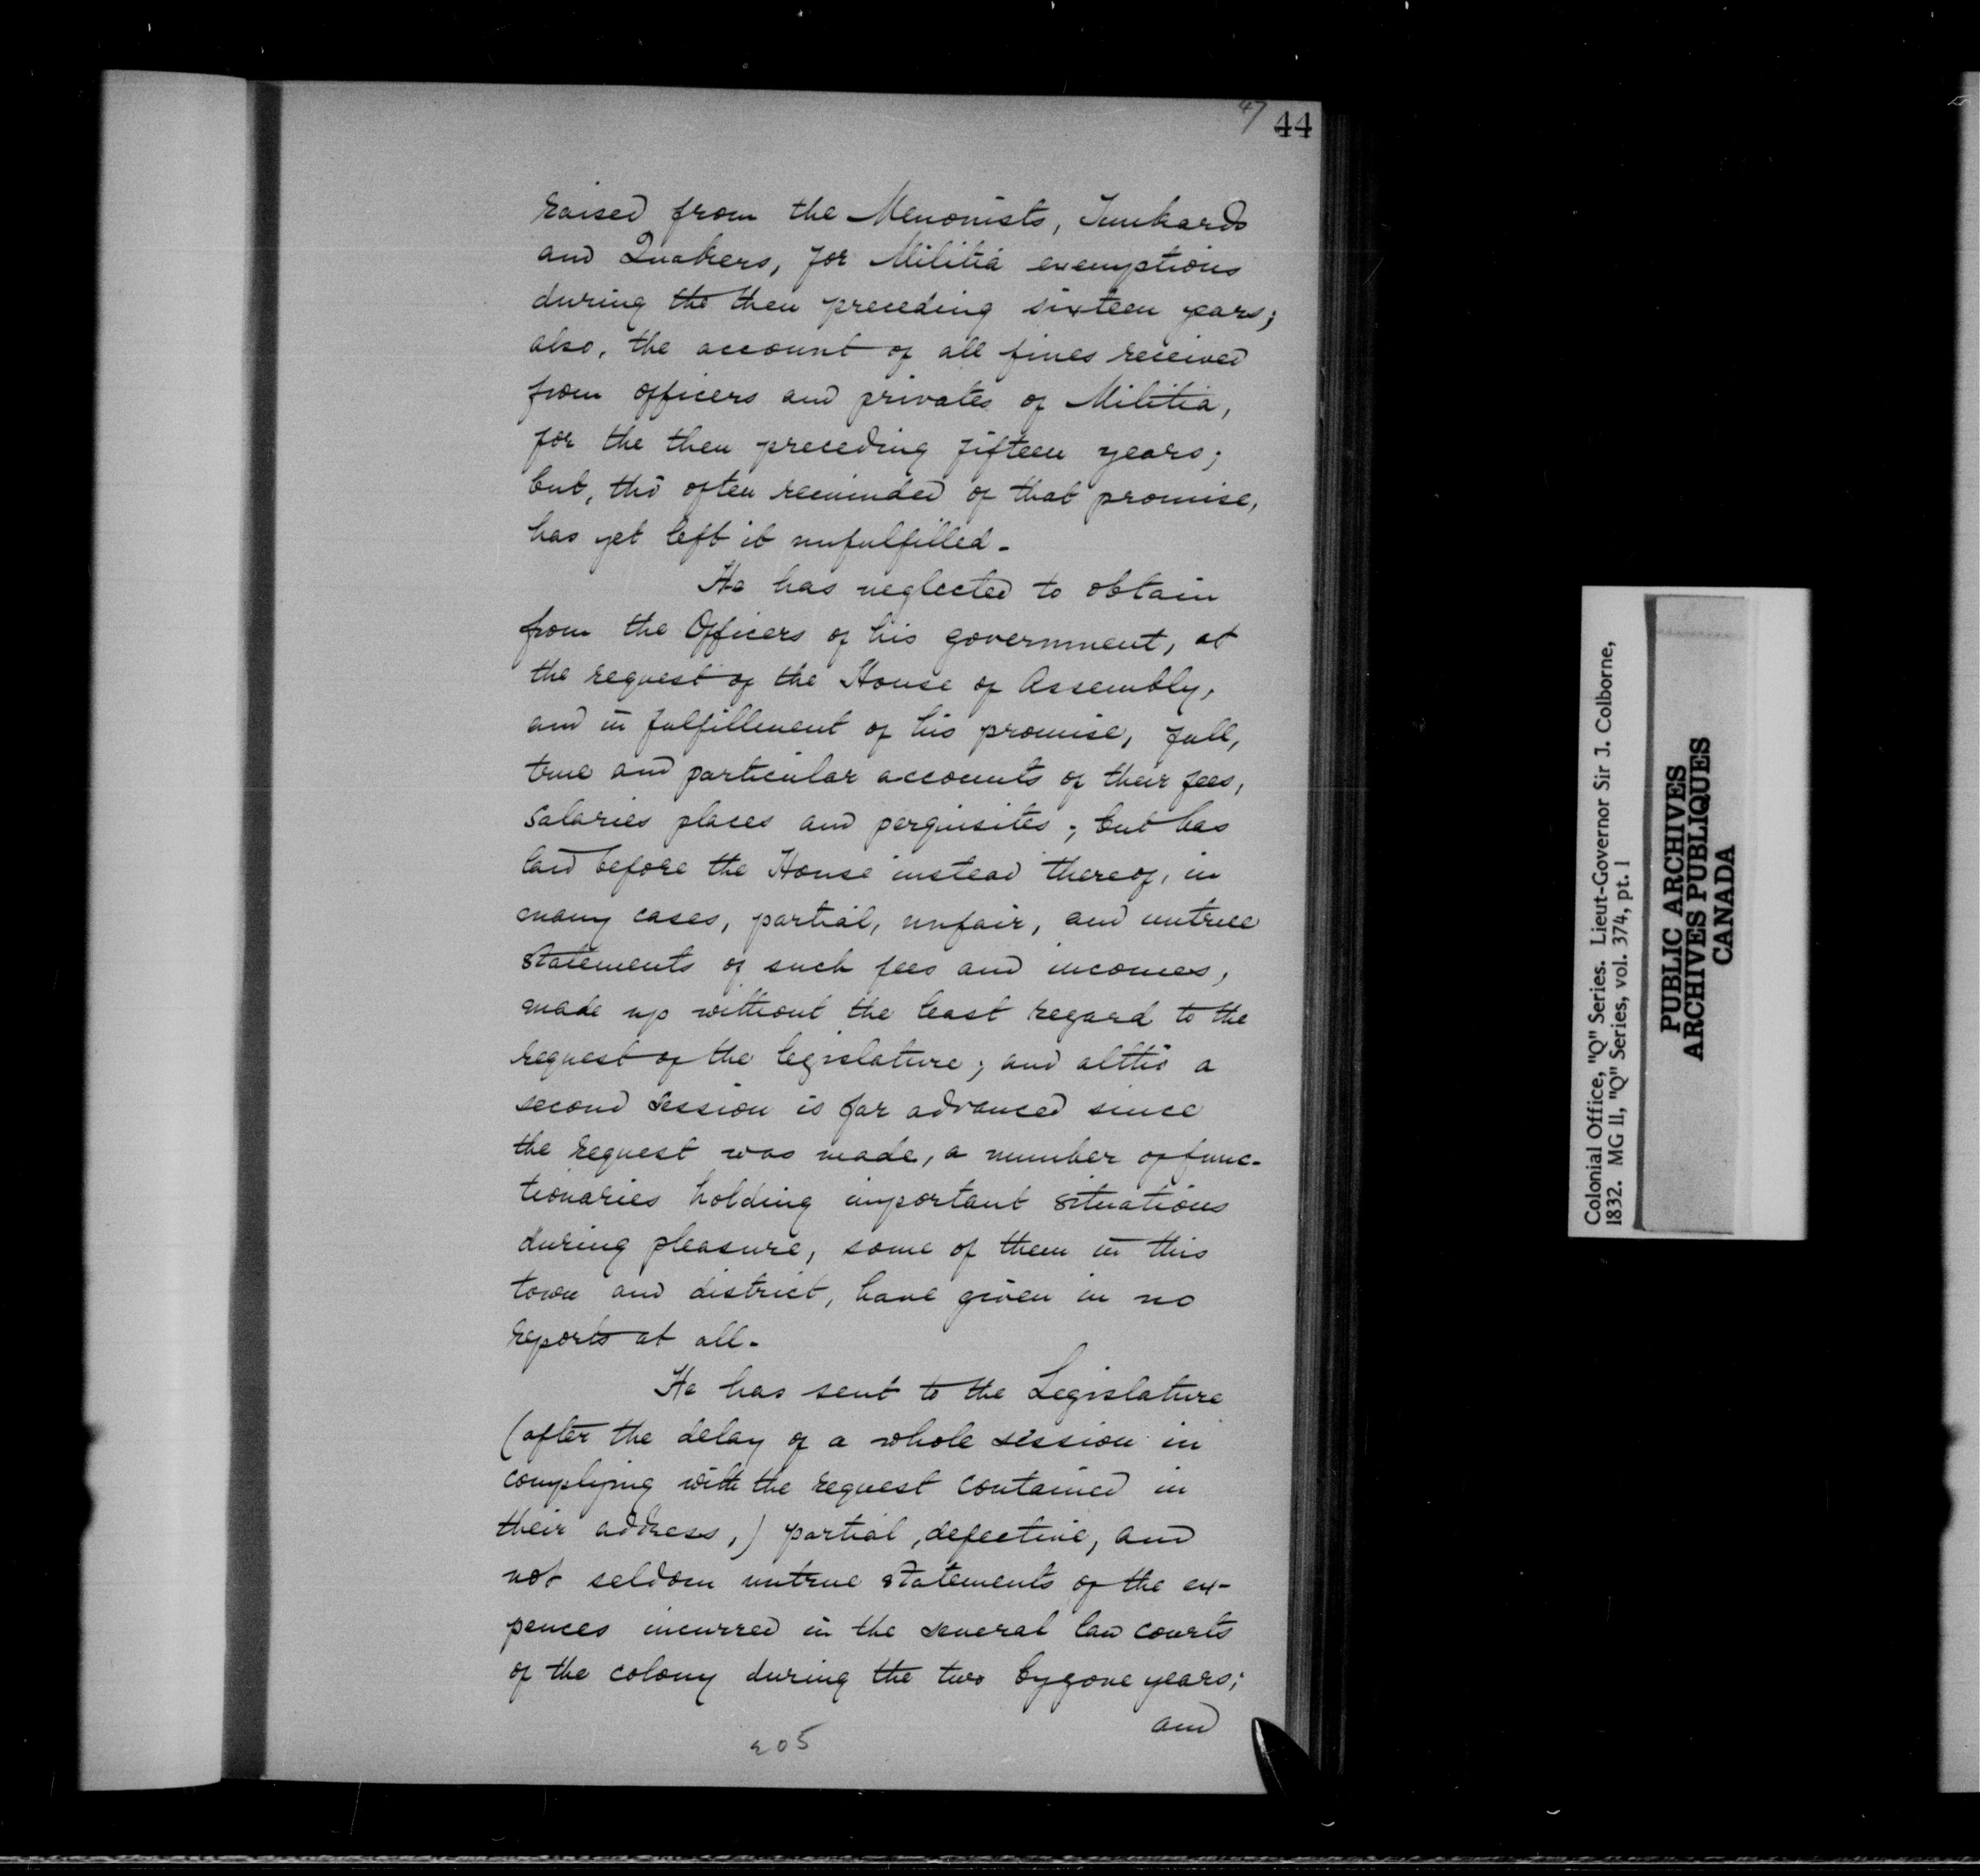 47
44
raised from the Menonists, Tunkards
and Quakers, for Militia exemptions
during the then preceding sixteen years;
also, the account of all fines received
from officers and privates of Militia,
for the then preceding fifteen years;
but, tho often reminded of that promise,
has yet left it unfulfilled-
He has neglected to obtain
from the Officers of his government, at
the request of the House of Assembly,
and in fulfillment of his promise, full,
true and particular accounts of their fees,
Salaries places and perquisites; but has
laid before the House instead thereof, in
many cases, partial, unfair, and untrue
statements of such fees and incomes,
made up without the least regard to the
request of the legislature; and altho a
second session is far advanced since
the request was made, a number of func-
tionaries holding important situations
during pleasure, some of them in this
town and district, have given in no
reports at all-
He has sent to the Legislature
(after the delay of a whole session in
complying with the request contained in
their address,) partial, defective, and
not seldom untrue statements of the ex-
pences incurred in the several law courts
of the colony during the two bygone years;
and
205
Colonial Office, "Q" Series. Lieut-Governor Sir J. Colborne,
1832. MG 11, "Q" Series, vol. 374, pt. 1
PUBLIC ARCHIVES
ARCHIVES PUBLIQUES
CANADA